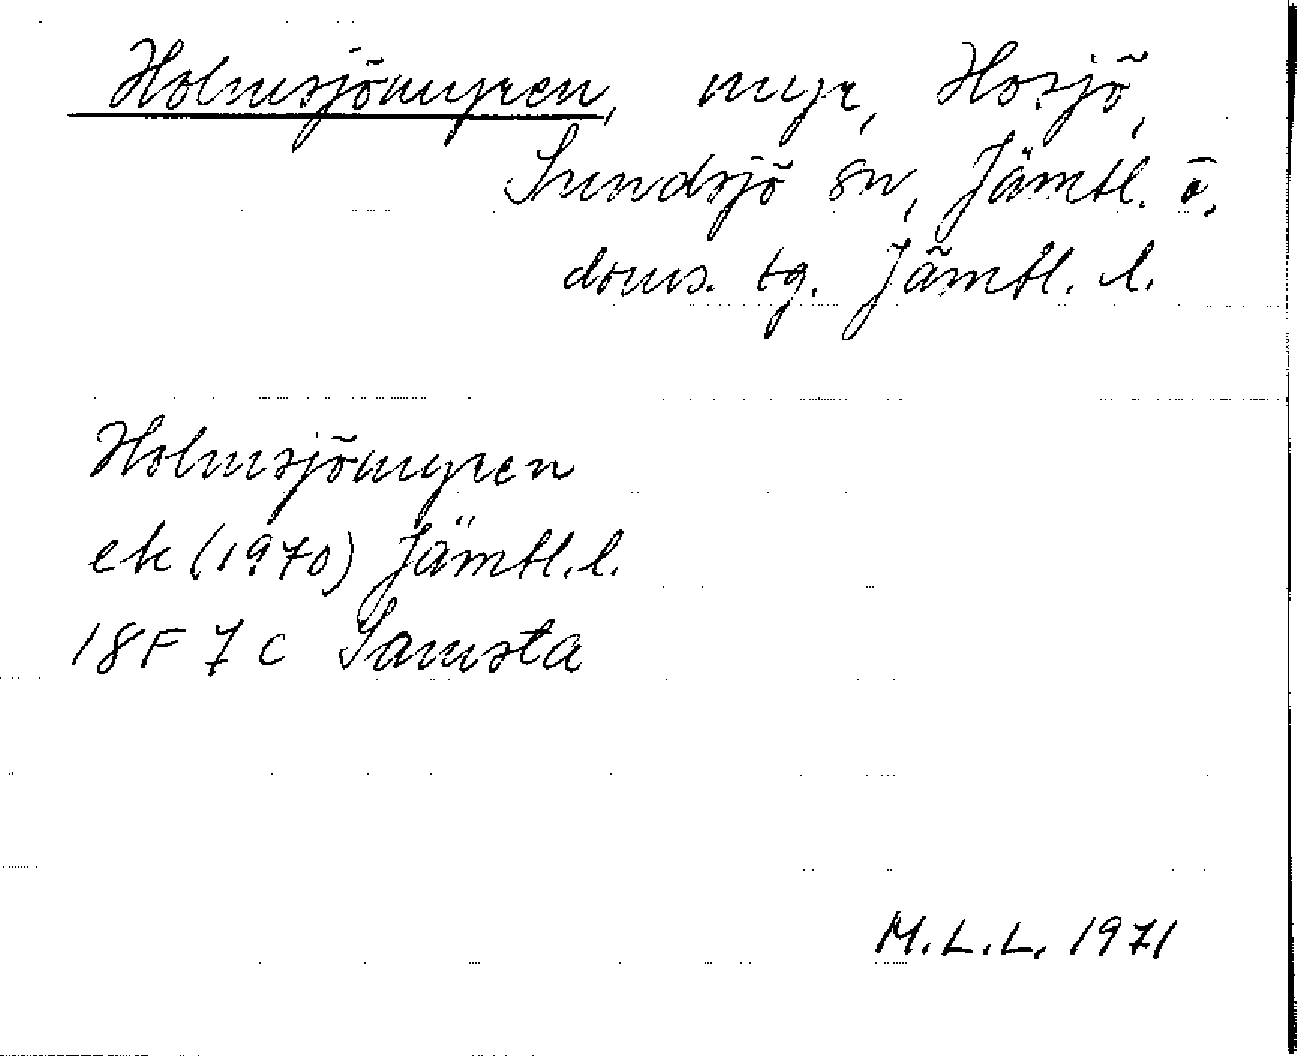 Holmsjömyren, myr, Hosjö,
Sundsjö sn, Jämtl. ö.
doms. tg. Jämtl. l.
Holmsjömyren
ek (1970) Jämtl. l.
18F 7c Samsta
M.L.L. 1971